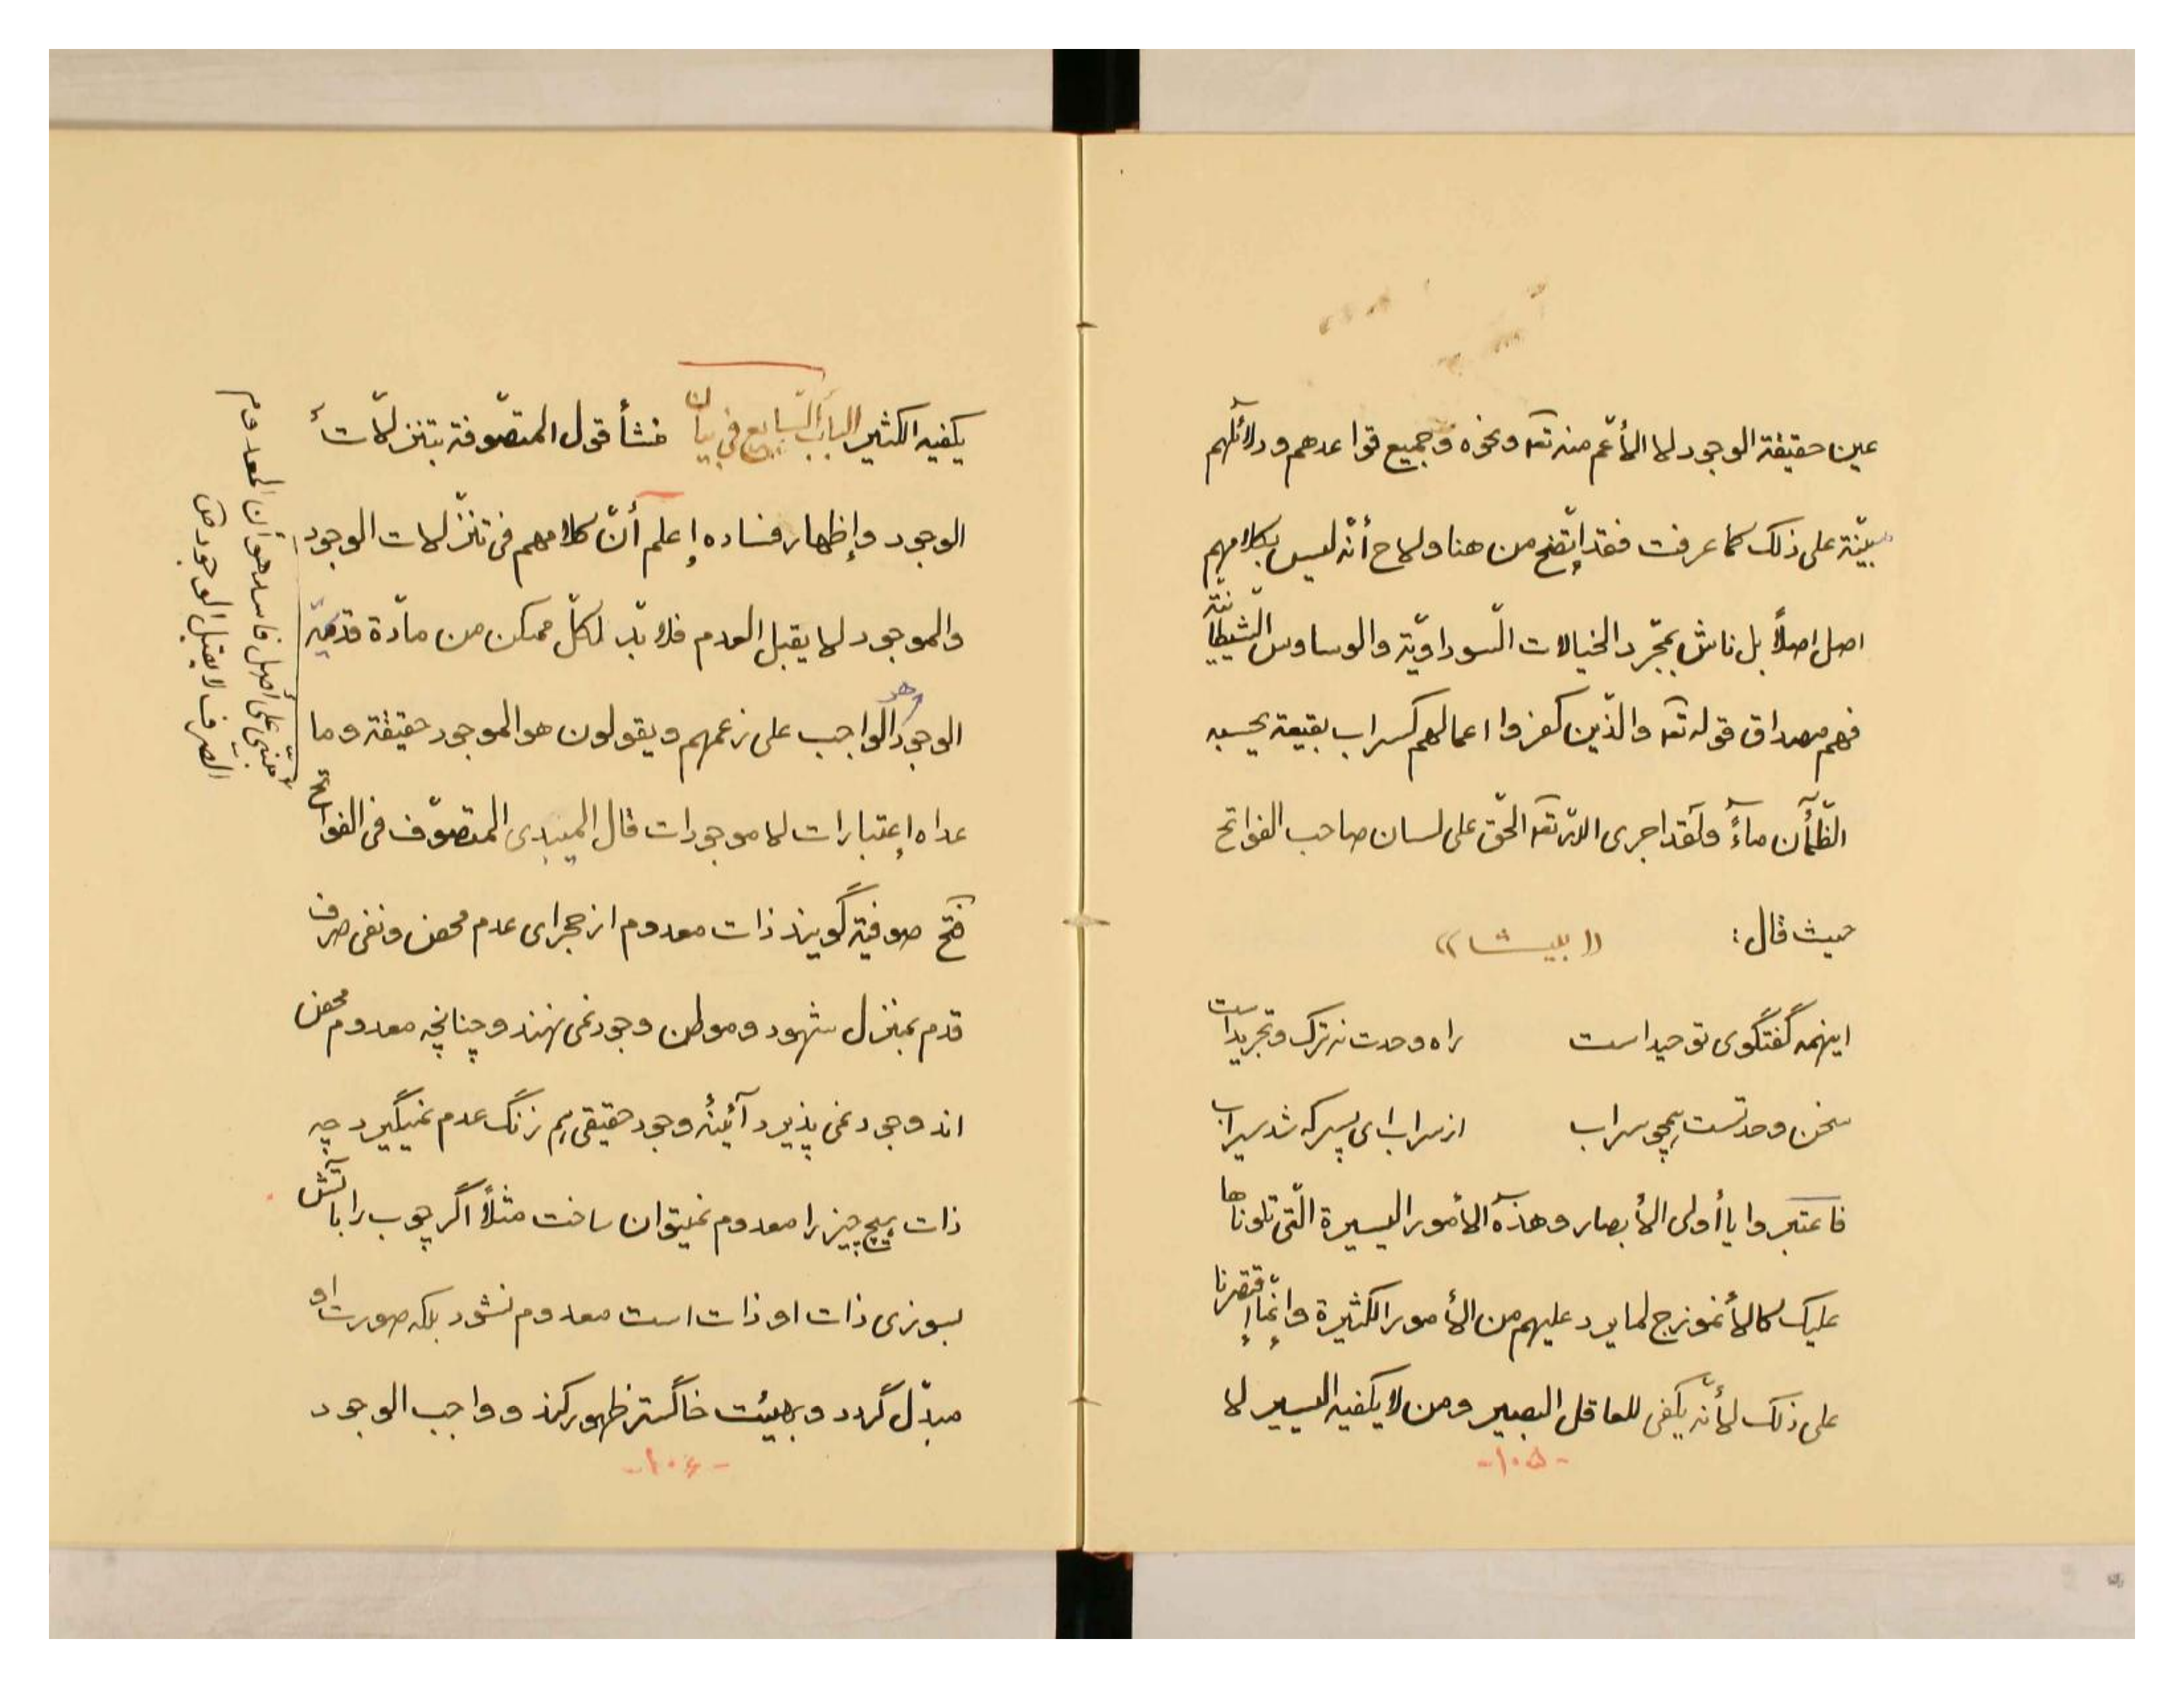 عين حقيقة الوجود لا الأعّم منه تعه ونحوه وجميع قواعدهم ودلآئلهم
مبيّنة على ذلك كما عرفت فقد إتّضح من هنا ولاح أنّه ليس بكلامهم
اصل اصلاً بل ناش بمجّرد الخيالات السّوداويّة والوساوس الشّيطانيّة
فهم مصداق قوله تعه والذّين كفروا اعمالهم كسراب بقيعة يحسبه
الظّمأن مآءً ولقد اجرى اللّه تعه الحّق على لسان صاحب الفواتح
حيث قال: ((بيت))
اينهمه گفتگوى توحيد است راه وحدت نه ترک وتجريد است
سخن وحدتست همچو سراب از سراب اى پسر که شد سيراب
فاعتبروا يا أولى الأبصار وهذه الأمور اليسيرة الّتى تلوناها
عليک كالأنموزج لما يرد عليهم من الأمور الكثيرة وإنّما إقتصرنا
على ذلک لأنّه يكفى للعاقل البصير ومن لا يكفيه اليسير لا
-١٠٥-
يكفيه الكثير الباب السّابع فى بيان منشأ قول المتصّوفة بتنزلّات
الوجود وإظهار فساده إعلم أنّ كلامهم فى تنزّلات الوجود
والموجود لا يقبل العدم فلا بدّ لكلّ ممكن من مادّة قديمّة
هو
الوجود الواجب على زعمهم ويقولون هو الموجود حقيقة وما
عداه إعتبارات لا موجودات قال الميبدى المتصوّف فى الفواتح
فتح صوفيّه گويند ذات معدوم از صحراى عدم محض ونفى صرف
قدم بمنزل شهود وموطن وجود نمى نهند وچنانچه معدوم محض
اند وجود نمى پذيرد آئينهٔ وجود حقيقى هم زنگ عدم نميگيرد چه
ذات هيچ چيز را معدوم نميتوان ساخت مثلاً اگر چوب را بآتش
بسوزى ذات او ذات است معدوم نشود بلكه صورت او
مبدّل گردد وبهيئت خاکستر ظهور کند وواجب الوجود
-١٠۶-
مبنّى على أصل فاسد هو أن المعدوم
الصرف لا يقبل الوجود